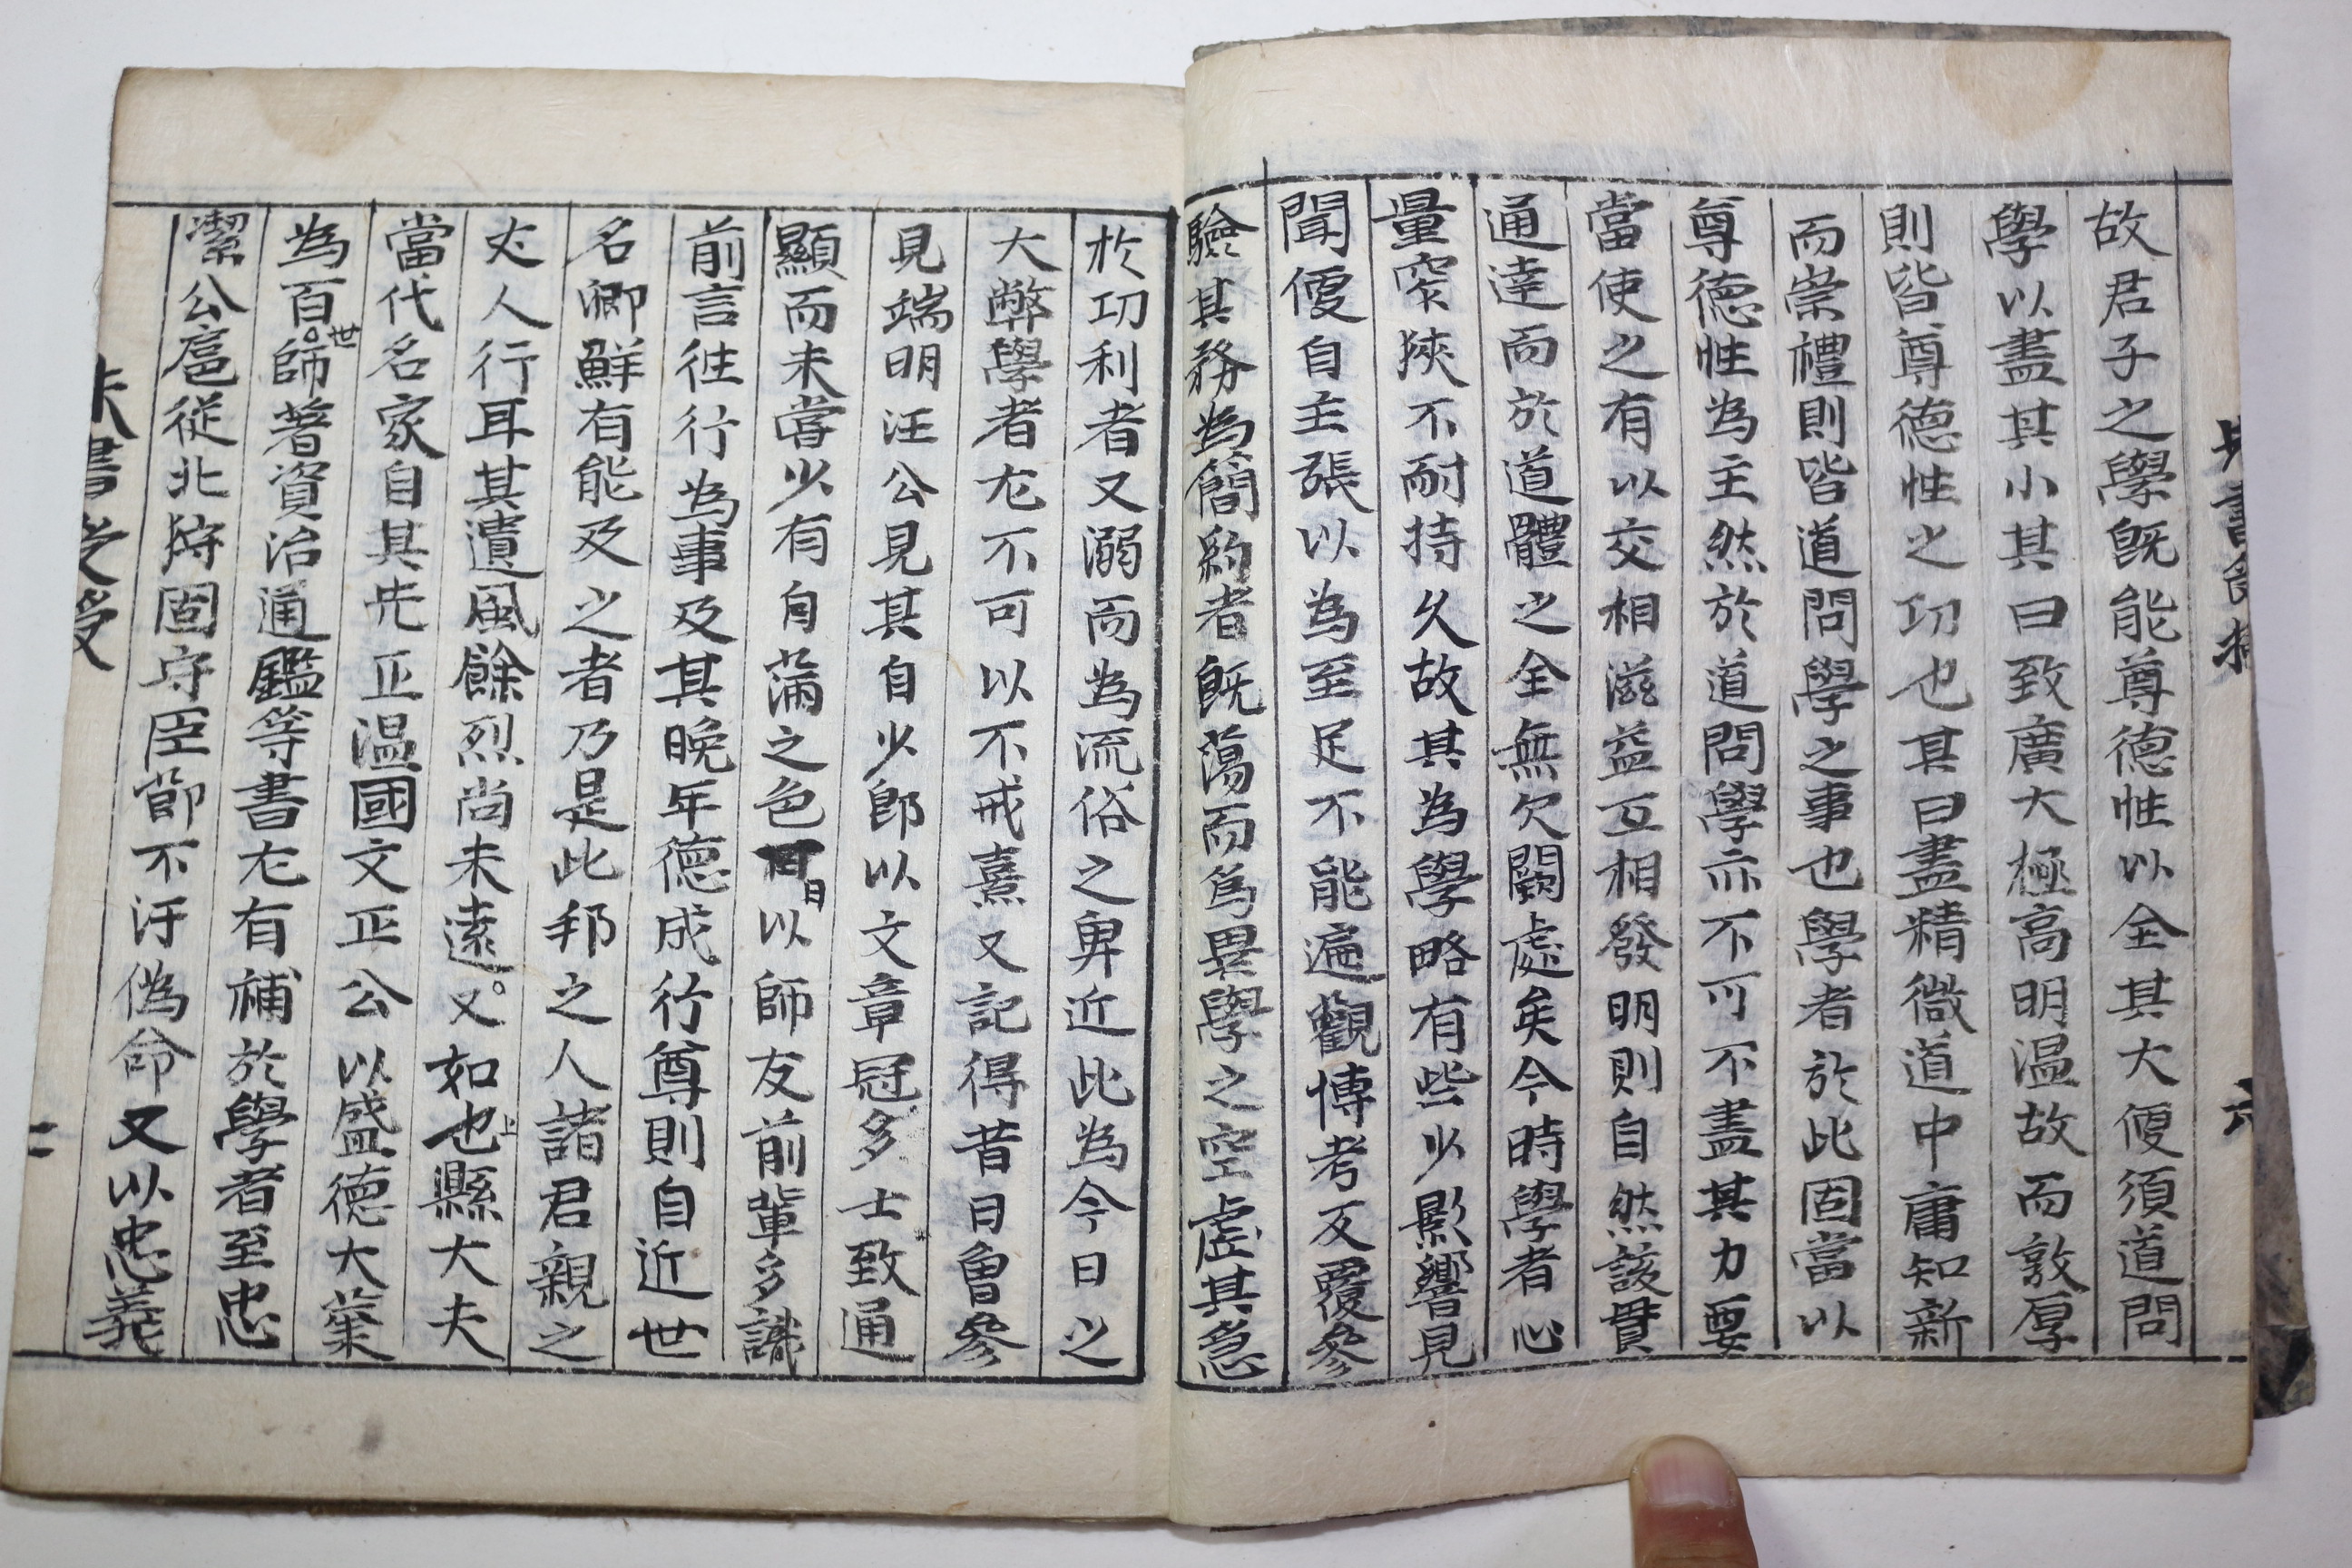 故君子之學既能尊德性以全其大便須道問
學以盡其小其曰致廣大極高明温故而敦厚
則皆尊德性之功也其曰盡精微道中庸知新
而崇禮則皆道問學之事也學者於此固當以
尊德性為主然於道問學亦不可不盡其力要
當使之有以交相滋益互相發明則自然該貫
通達而於道體之全無欠闕處矣今時學者心
量窄狹不耐持久故其為學略有些少影響見
聞便自主張以為至足不能遍觀博考反覆參
驗其務為簡約者既蕩而為異學之空虛其急
於功利者又溺而為流俗之卑近此為今日之
大弊學者尤不可以不戒熹又記得昔日曾參
見端明汪公見其自少即以文章冠多士致通
顯而未嘗少有自蒲之色日以師友前輩多識
前言往行為事及其晚年德成行尊則自近世
名卿鮮有能及之者乃是此邦之人諸君親之
丈人行耳其遺風餘烈尚未遠又如也縣大夫
當代名家自其先正温國文正公以盛德大業
為百世師著資治通鑑等書尤有補於學者至忠
潔公扈從北狩固守臣節不汙偽命又以忠義
朱書